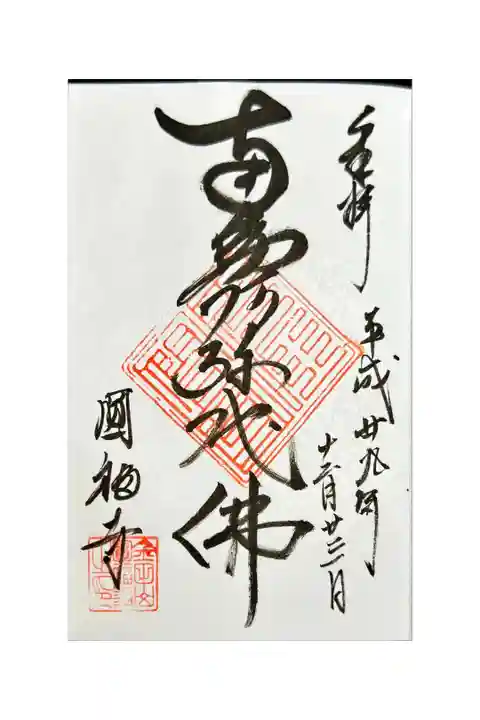 奉拝
平成廿九年
十二月廿三日
南無阿弥陀佛
圓福寺